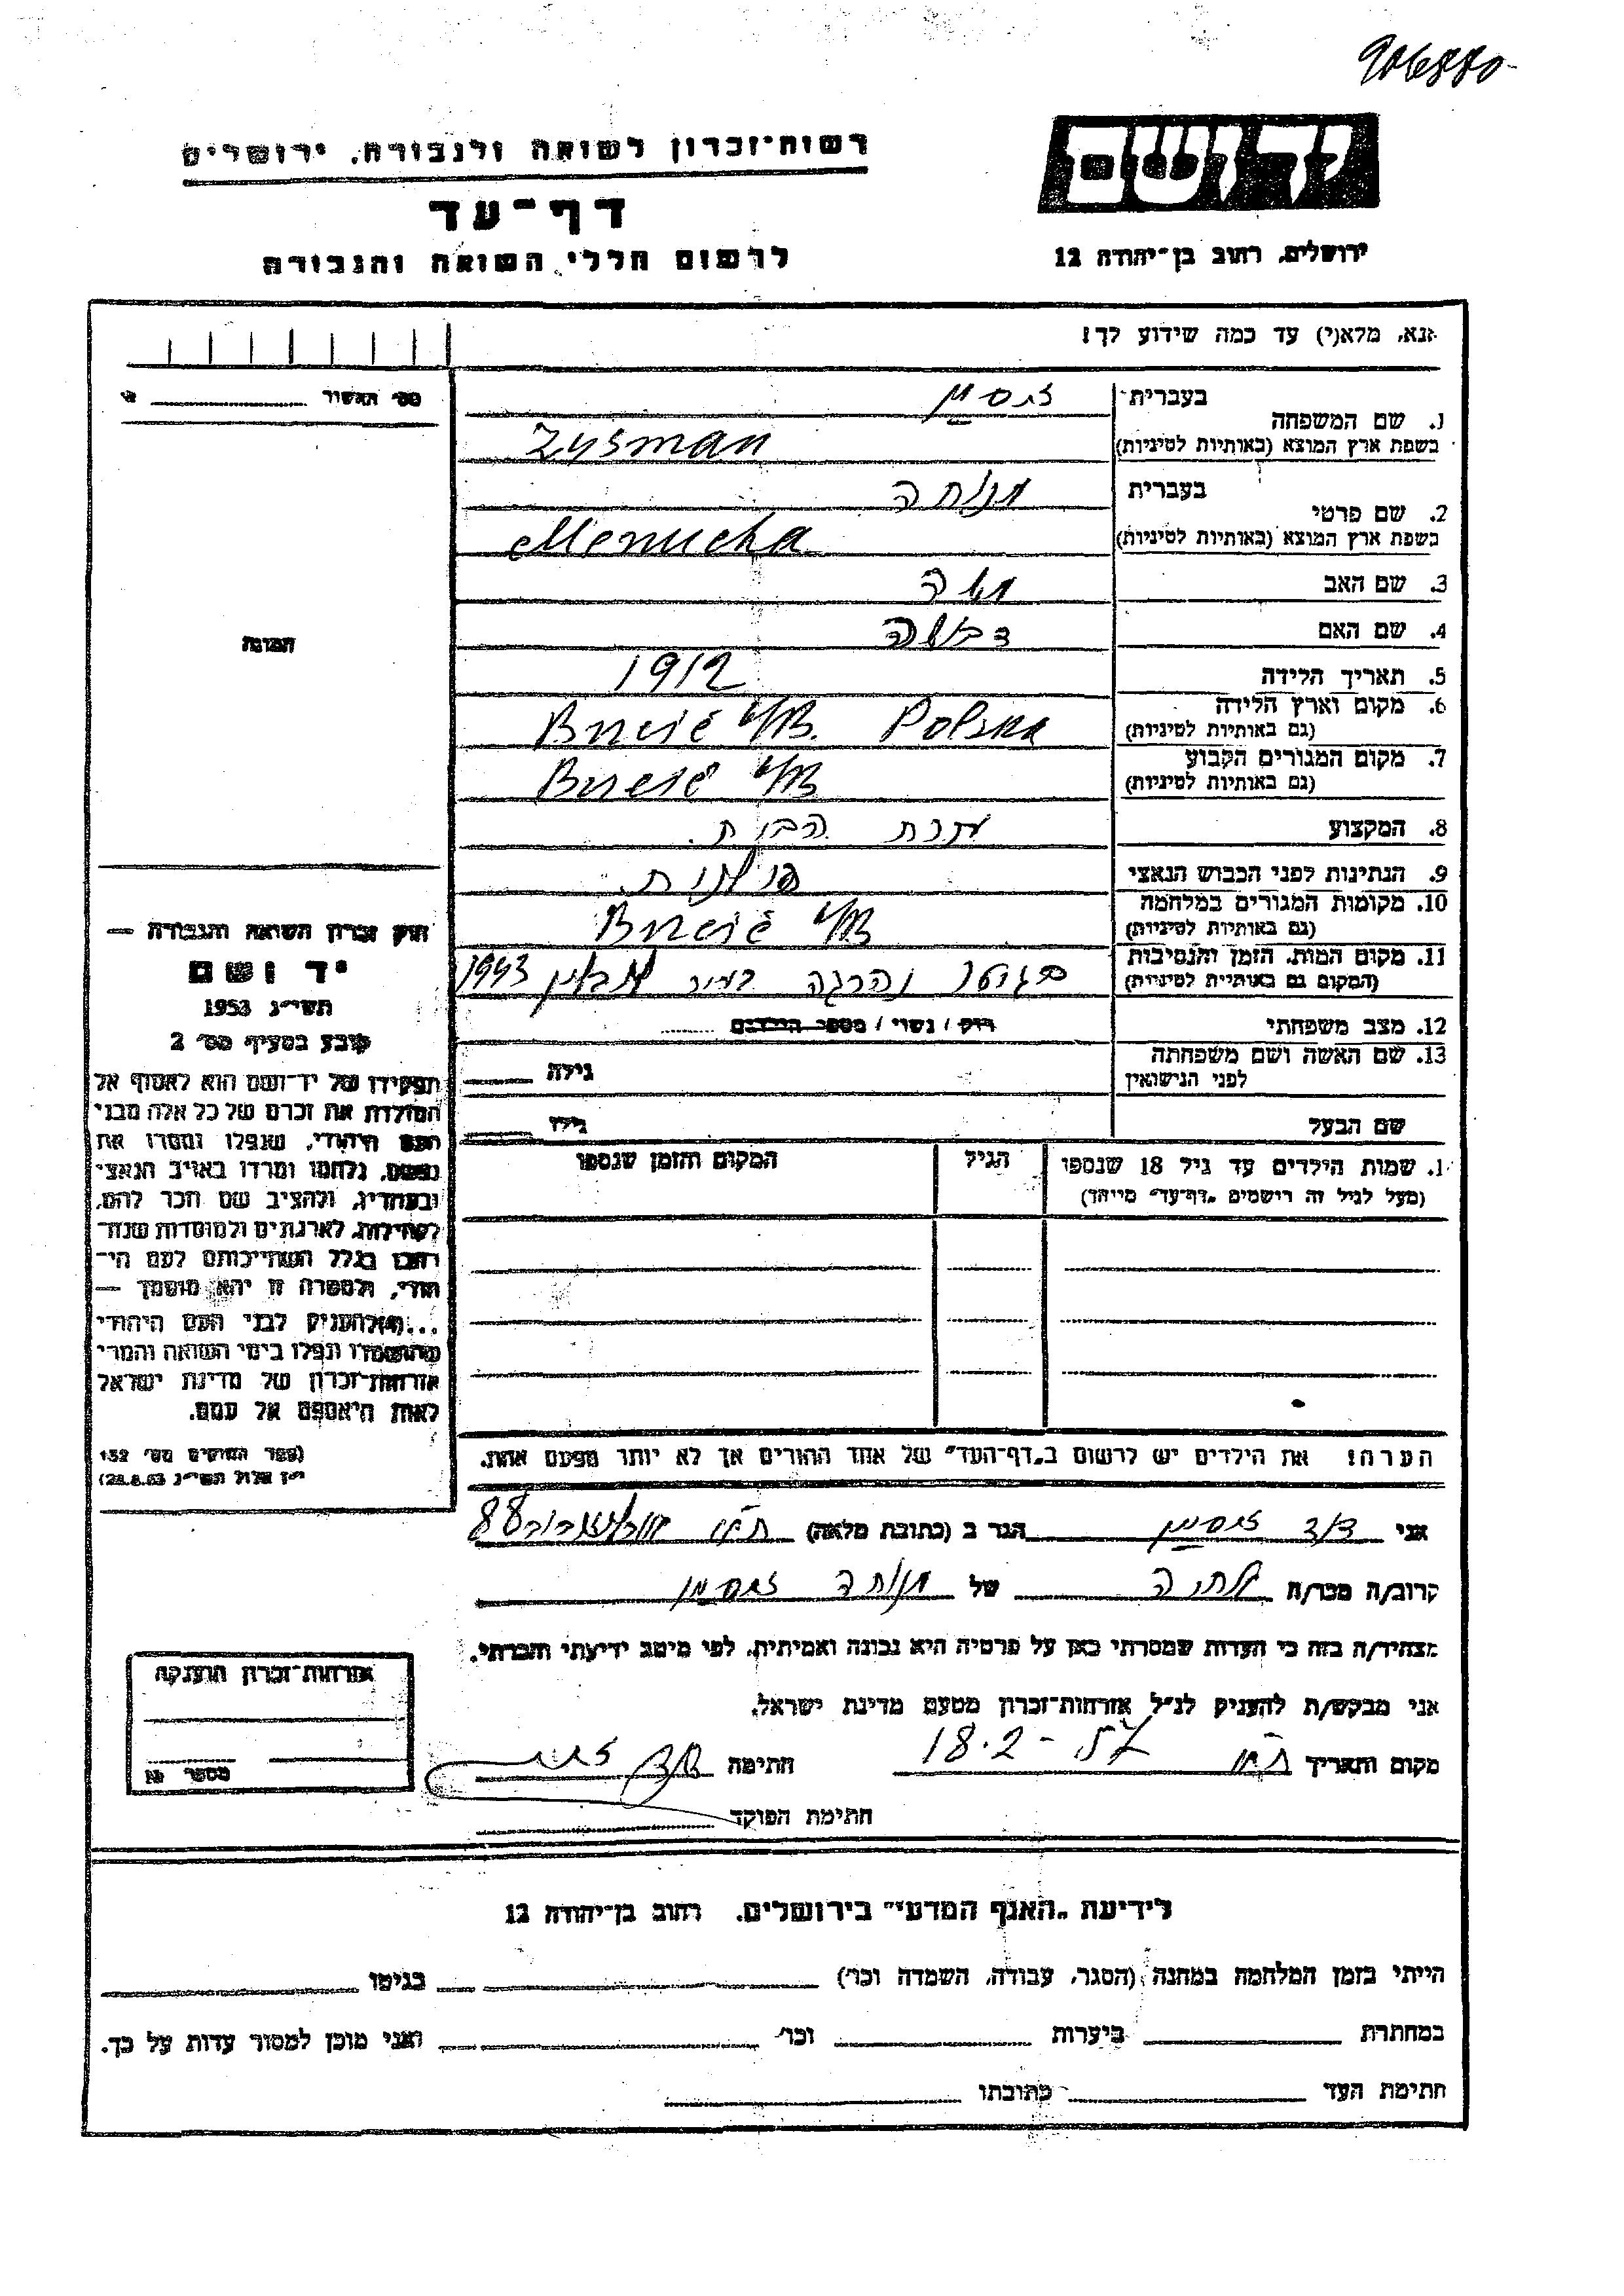 906880-
יד ושם
ירושלים, רחוב בן־יהודה 12
רשות־זכרון לשואה ולגבורה, ירושלים
דף־עד
לרשום חללי השואה והגבורה
אנא, מלא(י) עד כמה שידוע לך!
מס׳ האשור
1. שם המשפחה
בעברית זוסמן
בשפת ארץ המוצא (באותיות לטיניות) Zysman
2. שם פרטי
בעברית מנוחה
בשפת ארץ המוצא (באותיות לטיניות) Menucha
3. שם האב משה
4. שם האם דבושה
5. תאריך הלידה 1912
6. מקום וארץ הלידה (גם באותיות לטיניות) Brześć n/B. Polska
7. מקום המגורים הקבוע (גם באותיות לטיניות) Brześć n/B
8. המקצוע עקרת הבית.
9. הנתינות לפני הכבוש הנאצי פולנית.
10. מקומות המגורים במלחמה (גם באותיות לטיניות) Brześć n/B
11. מקום המות, הזמן והנסיבות (המקום גם באותיות לטיניות) בגיטו נהרגה 1943
12. מצב משפחתי רוק / נשוי / מספר הילדים
13. שם האשה ושם משפחתה לפני הנישואין גילה
שם הבעל גילו
1. שמות הילדים עד גיל 18 שנספו (מעל לגיל זה רושמים „דף־עד״ מיוחד)
הגיל
המקום והזמן שנספו
הערה! את הילדים יש לרשום ב„דף־העד״ של אחד ההורים אך לא יותר מפעם אחת.
התמונה
חוק זכרון השואה והגבורה —
יד ושם
תשי״ג 1953
קובע בסעיף מס׳ 2
תפקידו של יד־ושם הוא לאסוף אל
המולדת את זכרם של כל אלה מבני
העם היהודי, שנפלו ומסרו את
נפשם, נלחמו ומרדו באויב הנאצי
ובעוזריו, ולהציב שם וזכר להם,
לקהילות, לארגונים ולמוסדות שנח־
רבו בגלל השתייכותם לעם היהו־
די, ולמטרה זו יהא מוסמך —
...(4) להעניק לבני העם היהודי
שהושמדו ונפלו בימי השואה והמרי
אזרחות־זכרון של מדינת ישראל
לאות היאספם אל עמם.
(ספר החוקים מס׳ 132
י״ז אלול תשי״ג 28.8.53)
אני דוד זוסמן הגר ב (כתובת מלאה) 88
קרוב/ה מכר/ה של מנוחה זוסמן
מצהיר/ה בזה כי העדות שמסרתי כאן על פרטיה היא נכונה ואמיתית, לפי מיטב ידיעתי והכרתי.
אני מבקש/ת להעניק לנ״ל אזרחות־זכרון מטעם מדינת ישראל.
מקום ותאריך 18.2-57 חתימה
חתימת הפוקד
אזרחות־זכרון הוענקה
מספר
לידיעת „האגף המדעי״ בירושלים, רחוב בן־יהודה 12
הייתי בזמן המלחמה במחנה (הסגר, עבודה, השמדה וכו׳) בגיטו
במחתרת ביערות וכו׳ ואני מוכן למסור עדות על כך.
חתימת העד כתובתו